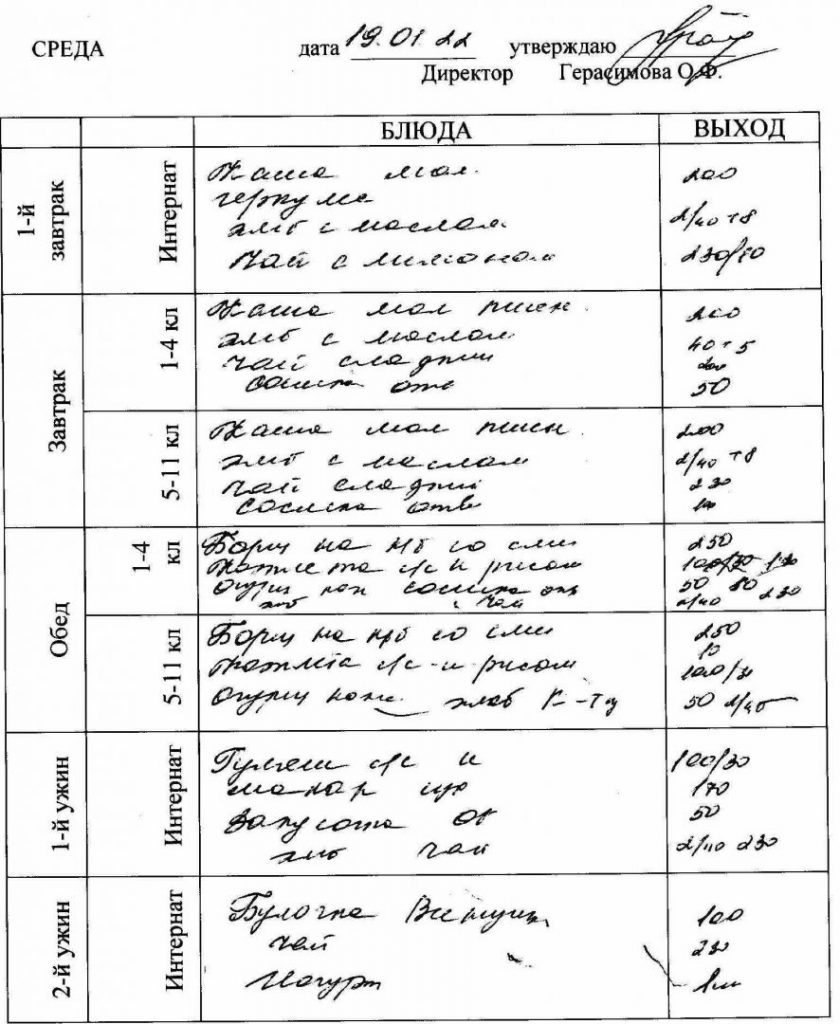 СРЕДА дата 19.01.22 утверждаю
Директор Герасимова О.Ф.
БЛЮДА ВЫХОД
1-й завтрак Интернат
Каша мол. 200
геркулес
хлеб с маслом 2/40+8
Чай с лимоном 230/10
Завтрак 1-4 кл
Каша мол пшен. 200
хлеб с маслом 40+5
чай сладкий 200
Сосиска отв 50
5-11 кл
Каша мол пшен. 200
хлеб с маслом 2/40+8
чай сладкий 230
Сосиска отв 100
Обед 1-4 кл
Борщ на м/б со сме 250
с рисом 100/30
Огурц кон сосиска отв 50 80 230
хлеб чай 2/40
5-11 кл
Борщ на м/б со сме 250
10
с рисом 100/30
Огурц конс. хлеб к-т 50 2/40
1-й ужин Интернат
Гуляш 100/30
макар 170
капуста 50
хлеб чай 2/40 230
2-й ужин Интернат
Булочка 100
чай 230
Йогурт 1шт